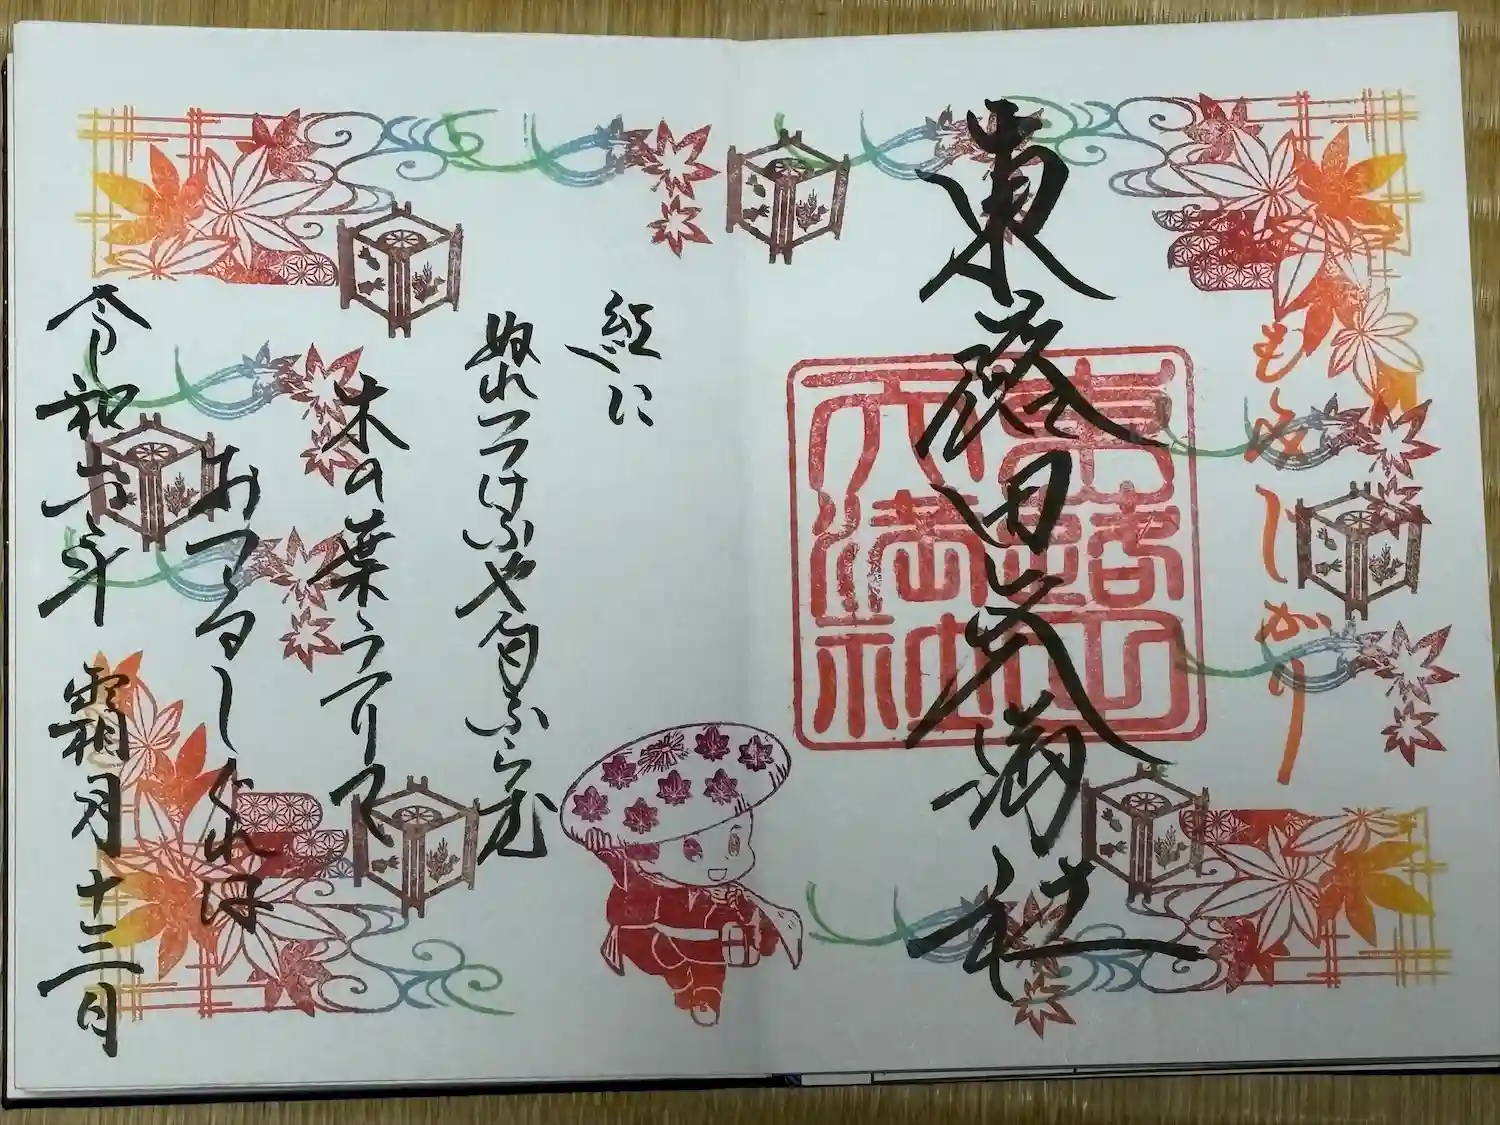 もみじがり
東蕗田天満社
東蕗田
天満社
紅に
ぬれつつけふや匂ふらむ
木の葉うつりて
おつるしぐれは
令和六年 霜月 十三日